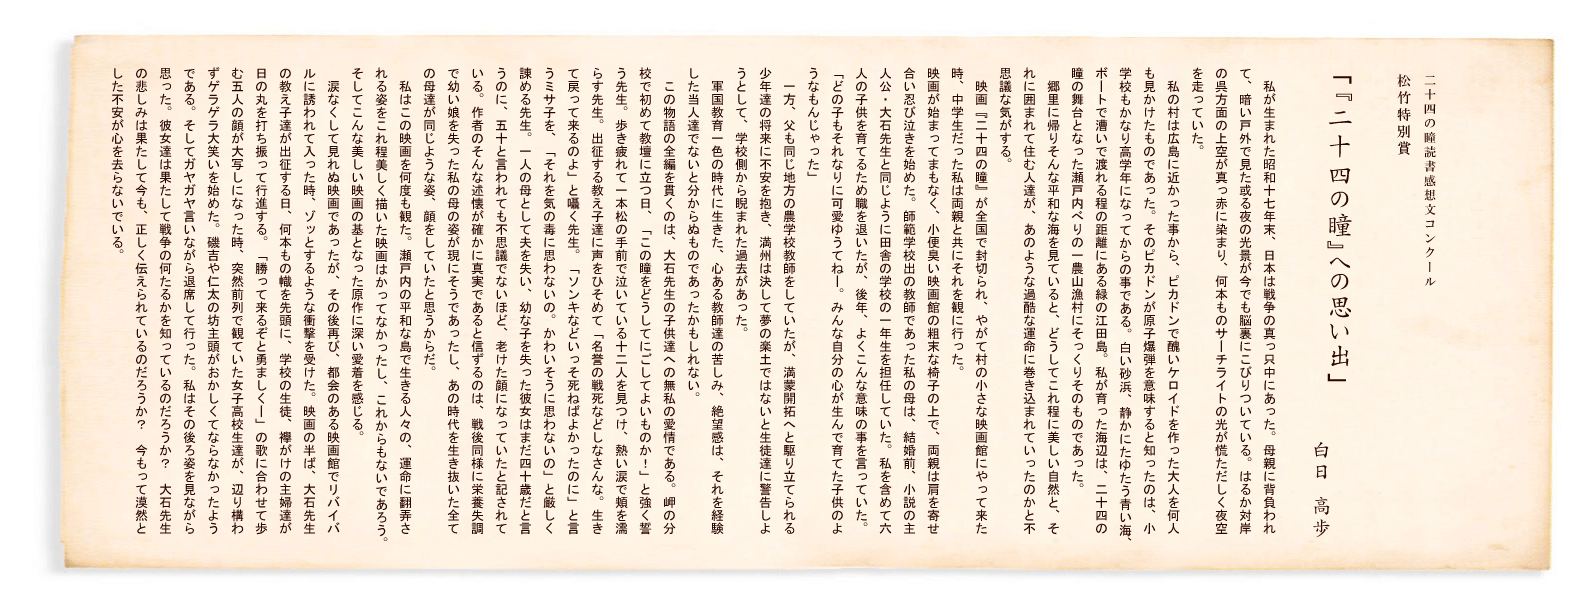 二十四の瞳読書感想文コンクール
松竹特別賞
「『二十四の瞳』への思い出」
白日　高歩
　私が生まれた昭和十七年末、日本は戦争の真っ只中にあった。母親に背負われ
て、暗い戸外で見た或る夜の光景が今でも脳裏にこびりついている。はるか対岸
の呉方面の上空が真っ赤に染まり、何本ものサーチライトの光が慌ただしく夜空
を走っていた。
　私の村は広島に近かった事から、ピカドンで醜いケロイドを作った大人を何人
も見かけたものであった。そのピカドンが原子爆弾を意味すると知ったのは、小
学校もかなり高学年になってからの事である。白い砂浜、静かにたゆたう青い海、
ボートで漕いで渡れる程の距離にある緑の江田島。私が育った海辺は、二十四の
瞳の舞台となった瀬戸内べりの一農山漁村にそっくりそのものであった。
　郷里に帰りそんな平和な海を見ていると、どうしてこれ程に美しい自然と、そ
れに囲まれて住む人達が、あのような過酷な運命に巻き込まれていったのかと不
思議な気がする。
　映画『二十四の瞳』が全国で封切られ、やがて村の小さな映画館にやって来た
時、中学生だった私は両親と共にそれを観に行った。
映画が始まってまもなく、小便臭い映画館の粗末な椅子の上で、両親は肩を寄せ
合い忍び泣きを始めた。師範学校出の教師であった私の母は、結婚前、小説の主
人公・大石先生と同じように田舎の学校の一年生を担任していた。私を含めて六
人の子供を育てるため職を退いたが、後年、よくこんな意味の事を言っていた。
「どの子もそれなりに可愛ゆうてねー。みんな自分の心が生んで育てた子供のよ
うなもんじゃった」
　一方、父も同じ地方の農学校教師をしていたが、満蒙開拓へと駆り立てられる
少年達の将来に不安を抱き、満州は決して夢の楽土ではないと生徒達に警告しよ
うとして、学校側から睨まれた過去があった。
　軍国教育一色の時代に生きた、心ある教師達の苦しみ、絶望感は、それを経験
した当人達でないと分からぬものであったかもしれない。
　この物語の全編を貫くのは、大石先生の子供達への無私の愛情である。岬の分
校で初めて教壇に立つ日、「この瞳をどうしてにごしてよいものか！」と強く誓
う先生。歩き疲れて一本松の手前で泣いている十二人を見つけ、熱い涙で頬を濡
らす先生。出征する教え子達に声をひそめて「名誉の戦死などしなさんな。生き
て戻って来るのよ」と囁く先生。「ソンキなどいっそ死ねばよかったのに」と言
うミサ子を、「それを気の毒に思わないの。かわいそうに思わないの」と厳しく
諫める先生。一人の母として夫を失い、幼な子を失った彼女はまだ四十歳だと言
うのに、五十と言われても不思議でないほど、老けた顔になっていたと記されて
いる。作者のそんな述懐が確かに真実であると信ずるのは、戦後同様に栄養失調
で幼い娘を失った私の母の姿が現にそうであったし、あの時代を生き抜いた全て
の母達が同じような姿、顔をしていたと思うからだ。
　私はこの映画を何度も観た。瀬戸内の平和な島で生きる人々の、運命に翻弄さ
れる姿をこれ程美しく描いた映画はかってなかったし、これからもないであろう。
そしてこんな美しい映画の基となった原作に深い愛着を感じる。
　涙なくして見れぬ映画であったが、その後再び、都会のある映画館でリバイバ
ルに誘われて入った時、ゾッとするような衝撃を受けた。映画の半ば、大石先生
の教え子達が出征する日、何本もの幟を先頭に、学校の生徒、襷がけの主婦達が
日の丸を打ち振って行進する。「勝って来るぞと勇ましくー」の歌に合わせて歩
む五人の顔が大写しになった時、突然前列で観ていた女子高校生達が、辺り構わ
ずゲラゲラ大笑いを始めた。磯吉や仁太の坊主頭がおかしくてならなかったよう
である。そしてガヤガヤ言いながら退席して行った。私はその後ろ姿を見ながら
思った。彼女達は果たして戦争の何たるかを知っているのだろうか？　大石先生
の悲しみは果たして今も、正しく伝えられているのだろうか？　今もって漠然と
した不安が心を去らないでいる。